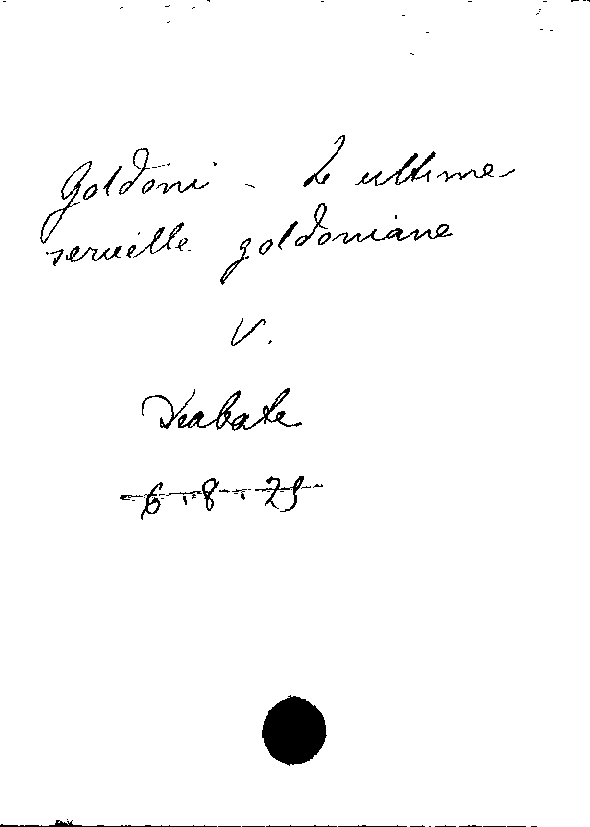 Goldoni - Le ultime
servette goldoniane
V.
Diabate
6.8.25